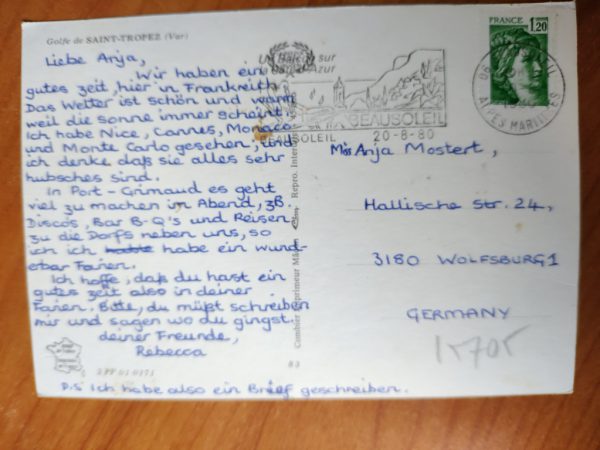 Golfe de SAINT-TROPEZ (Var)
Liebe Anja,
Wir haben ein
gutes zeit, hier in Frankreich.
Das Wetter ist schön und warm
weil die sonne immer scheint.
Ich habe Nice, Cannes, Monaco
und Monte Carlo gesehen, und
ich denke daß sie alles sehr
hubsches sind.
In Port-Grimaud es geht
viel zu machen im Abend, zB.
Discos, Bar B-Q's und Reisen
zu die Dorfs neben uns, so
ich ich habe ein wund-
erbar Farien.
Ich hoffe, daß du hast ein
gutes zeit also in deiner
Farien. Bitte, du müßt schreiben
mir und sagen wo du gingst.
deiner Freunde,
Rebecca
P.S Ich habe also ein Brief geschreiben.
83
Combier Imprimeur Mâcon
Repro.
sur
d'Azur
BEAUSOLEIL
BEAUSOLEIL 20-8-80
FRANCE
1,20
06
ALPES MARITIMES
Miss Anja Mostert,
Hallische Str. 24,
3180 WOLFSBURG 1
GERMANY
15705